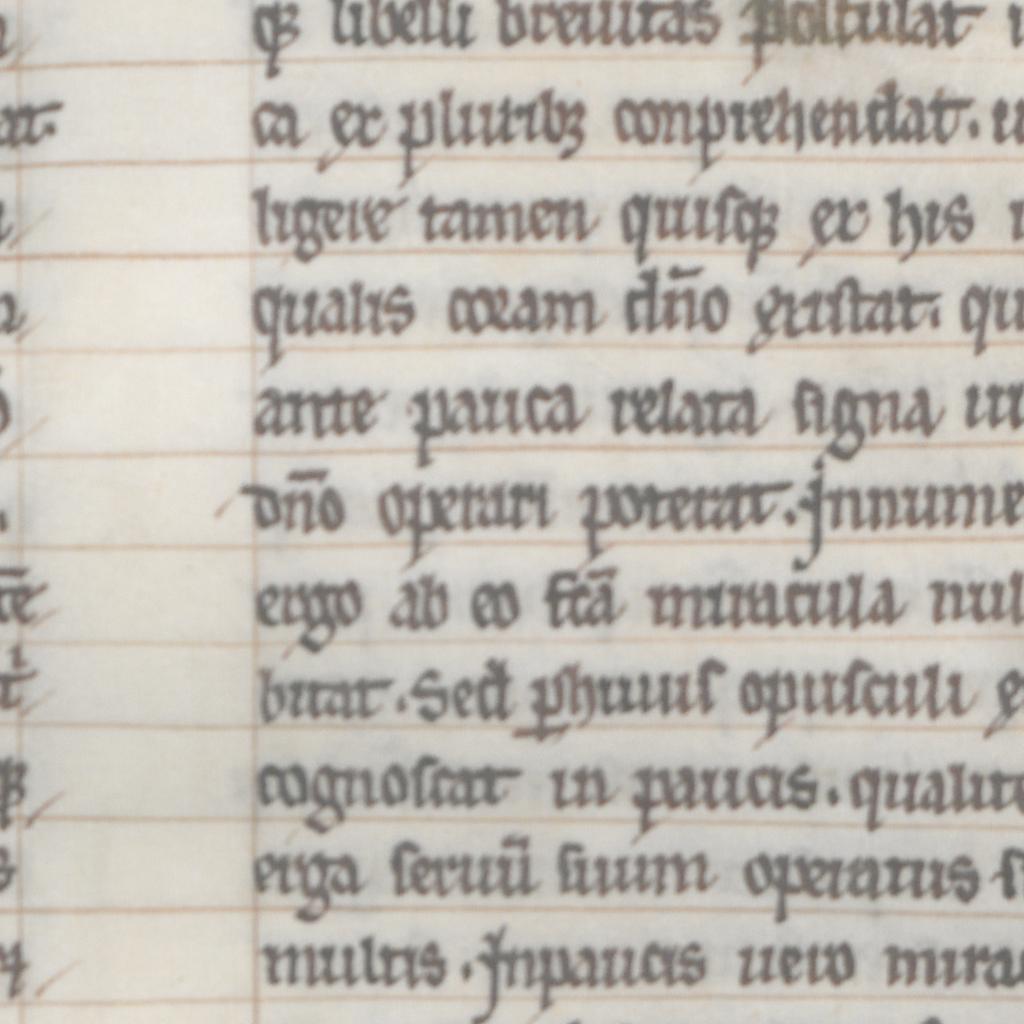 qꝫ libelli breuitas postulat
ca ex pluribꝫ conprehendat.
ligere tamen quisqꝫ ex his
qualis coram dn̄o extitat. qu
ante pauca relata signa
dn̄o operari poterat. Jnnume
ergo ab eo fc̄a miracula nul
bitat. Sed ꝑhuius opusculi
cognoscat in paucis. qualite
erga seruū suum operatus
multis. Jnpaucis uero mira